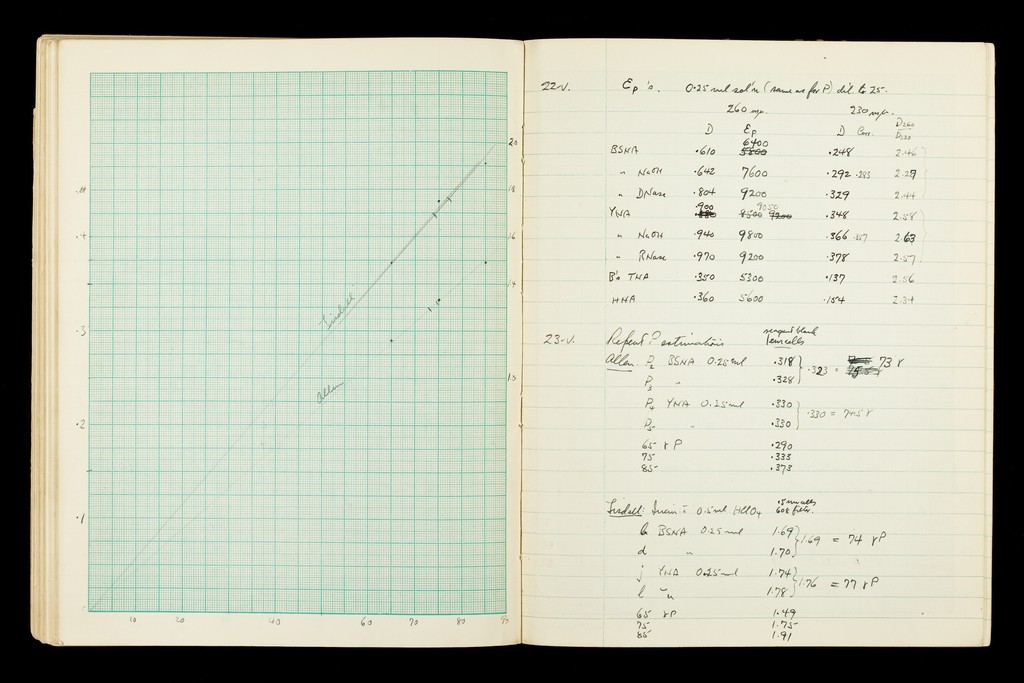 20
18
.4
16
14
.3
Tisdall
Allen
13
.2
.1
10 20 40 60 70 80 90
22-V. Ep's. 0.25 ml sol'n (same as for P) dil. to 25.
260 mμ. 230 mμ.
D Ep D Corr. D260/D230
6400
BSNA .610 5800 .248 2.46
" NaOH .642 7600 .292 .283 2.27
" DNase .804 9200 .329 2.44
.900 9050
YNA .880 8500 9200 .348 2.58
" NaOH .940 9800 .366 .357 2.63
" RNase .970 9200 .378 2.57
B's TNA .350 5300 .137 2.56
HNA .360 5600 .154 2.34
23-V. Repeat P estimations reagent blank
1 cm cells
Allen. P2 BSNA 0.25 ml .318
.323 = 73 γ
P3 " .328
P4 YNA 0.25 ml .330
.330 = 74.5 γ
P5 " .330
65 γ P .290
75 .333
85 .373
Tisdall: 0.5 ml HClO4 .5 cm cells
608 filter.
b BSNA 0.25 ml 1.69
1.69 = 74 γP
d " 1.70
j YNA 0.25 ml 1.74
1.76 = 77 γP
l " 1.78
65 γP 1.49
75 1.75
85 1.91